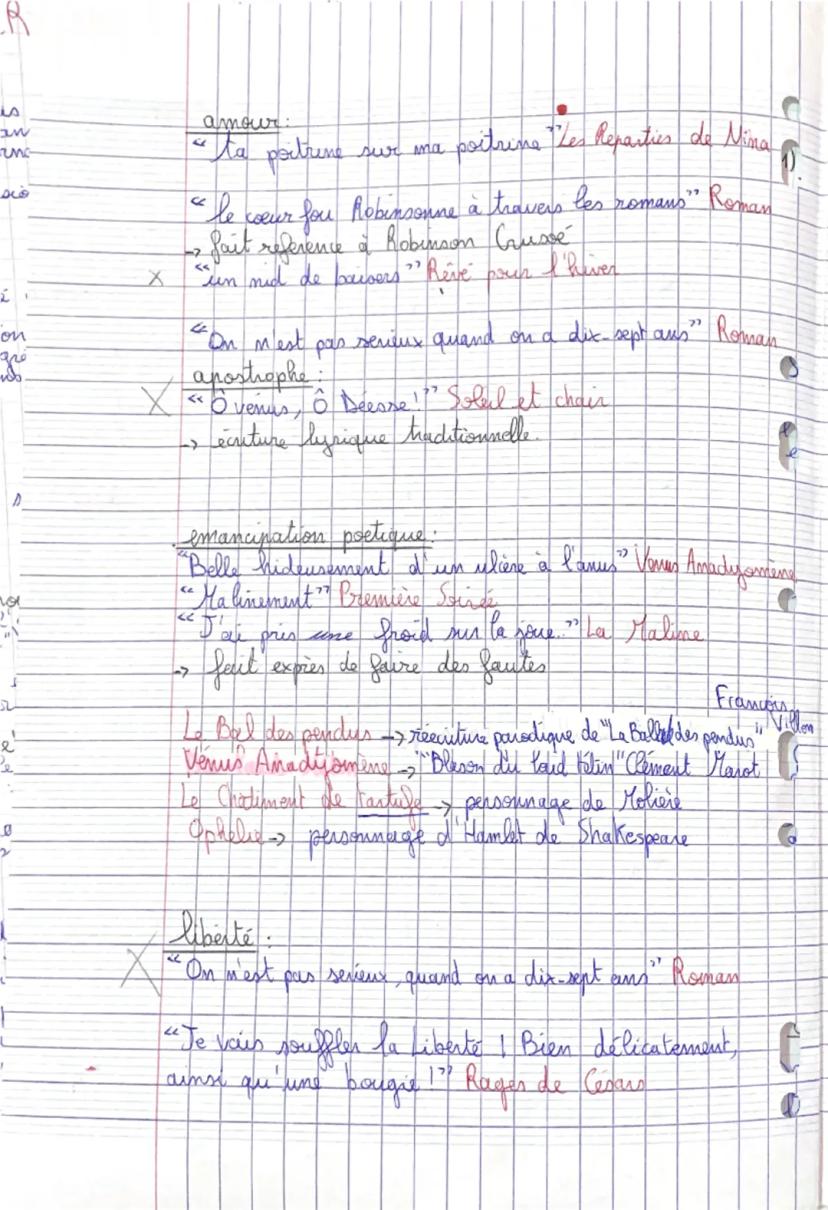 amour :
“ta poitrine sur ma poitrine” Les Reparties de Nina
“le cœur fou Robinsonne à travers les romans” Roman
→ fait reference à Robinson Crusoé
x “un nid de baisers” Rêvé pour l'hiver
“On n'est pas serieux quand on a dix-sept ans” Roman
apostrophe :
X “Ô venus, Ô Déesse !” Soleil et chair
→ écriture lyrique traditionnelle.
emancipation poetique :
“Belle hideusement d'un ulcère à l'anus” Venus Anadyomène
“Malinement” Première Soirée
“J'ai pris une froid sur la joue..” La Maline
→ fait exprès de faire des fautes
François Villon
Le Bal des pendus → réécriture parodique de "La Ballade des pendus"
Vénus Anadyomène → "Blason du laid tétin" Clément Marot
Le Châtiment de tartufe → personnage de Molière
Ophélie → personnage d'Hamlet de Shakespeare
liberté :
X “On n'est pas serieux, quand on a dix-sept ans” Roman
“Je vais souffler la Liberté ! Bien délicatement,
ainsi qu'une bougie !” Rages de Césars